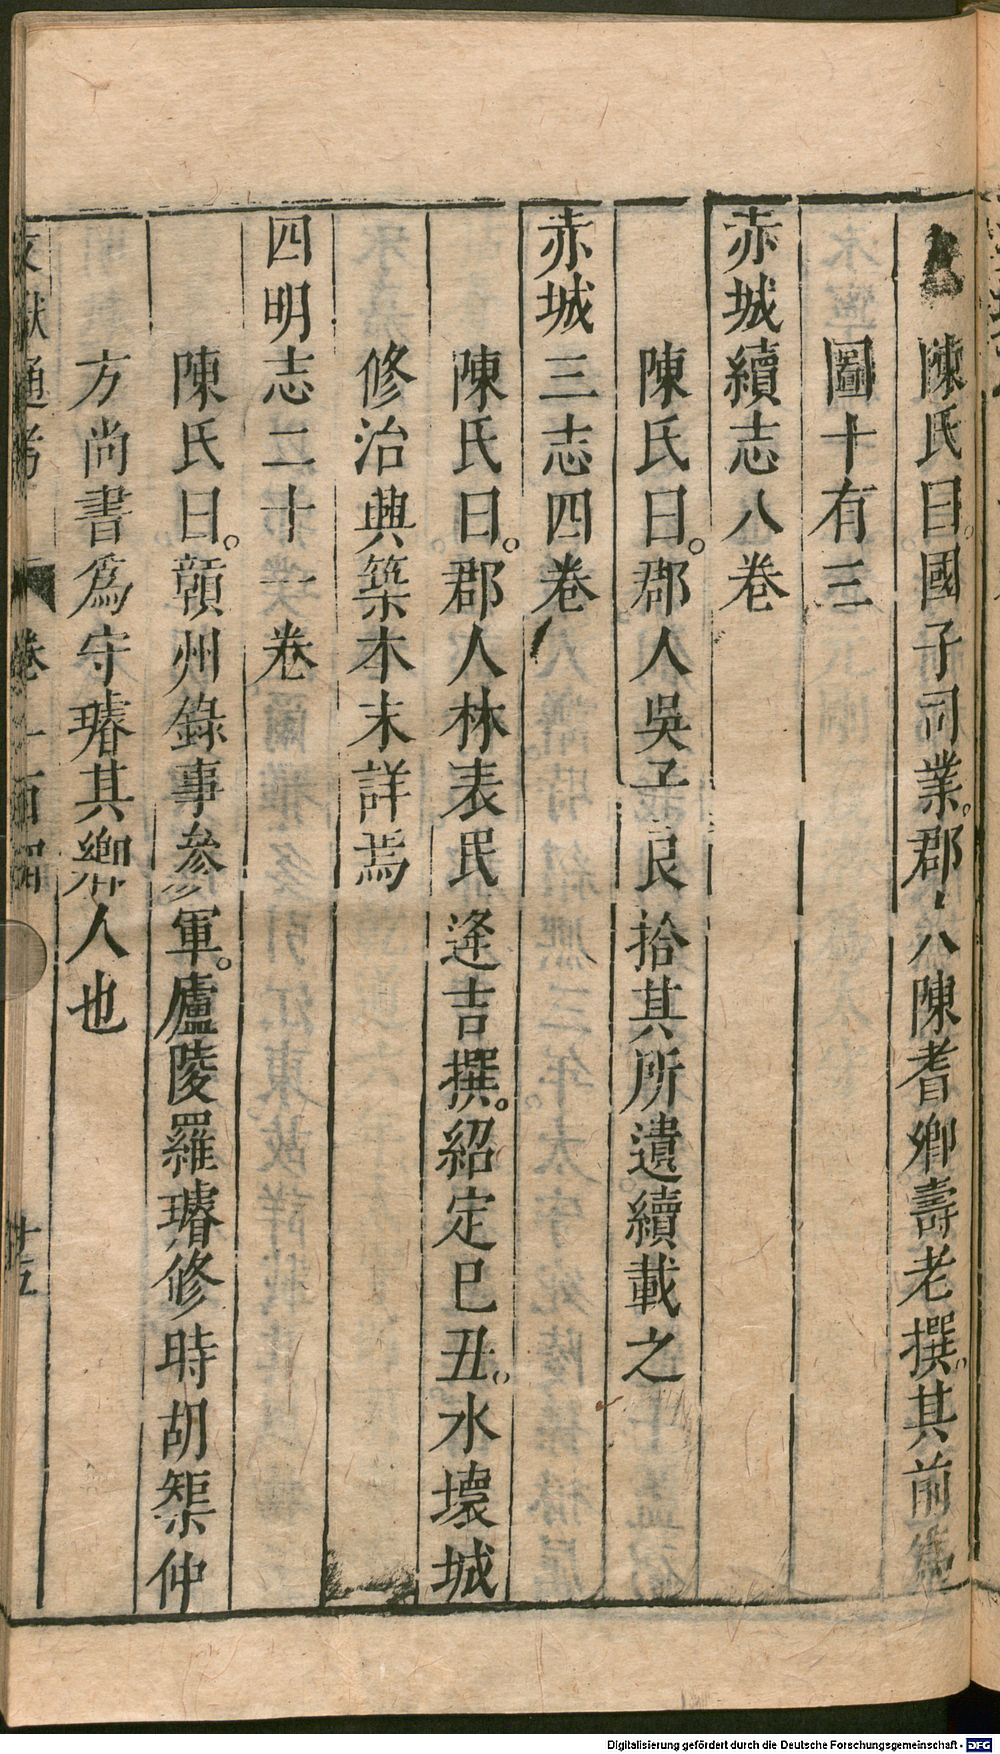 陳氏曰。國子司業。郡人陳耆卿壽老撰。其前爲
圖十有三
赤城續志八卷
陳氏曰。郡人吳子良拾其所遺續載之
赤城三志四卷
陳氏曰。郡人林表民逢吉撰。紹定已丑。水壞城
修治興築本末詳焉
四明志二十一卷
陳氏曰。贑州錄事參軍。廬陵羅璿修時胡榘仲
方尚書爲守璿其鄉人也
文獻通考 卷二百四 十五
Digitalisierung gefördert durch die Deutsche Forschungsgemeinschaft - DFG